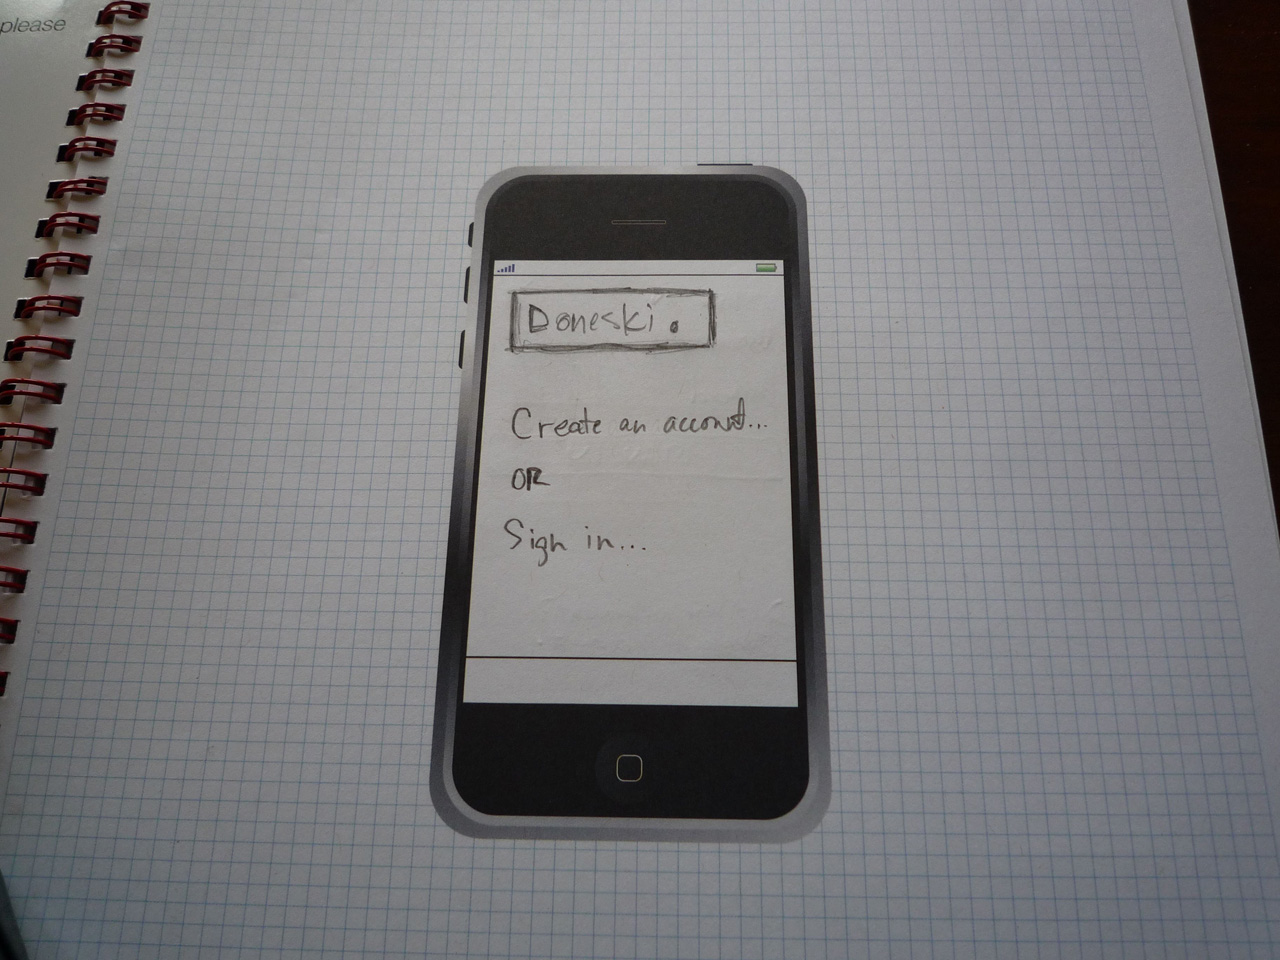 please
Doneski.
Create an account...
OR
Sign in...